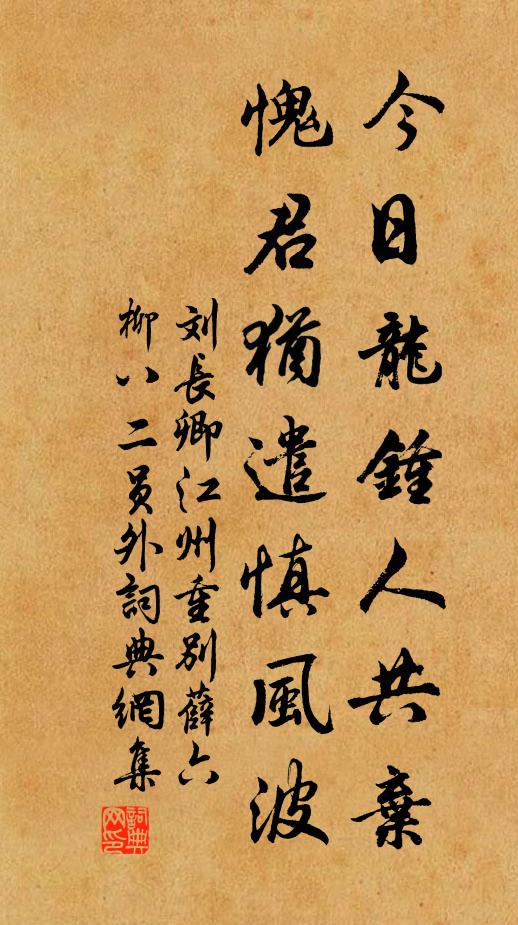 今日龍鍾人共棄
愧君猶遣慎風波
刘長卿江州重别薛六
柳八二員外詞典網集
詞典
网印